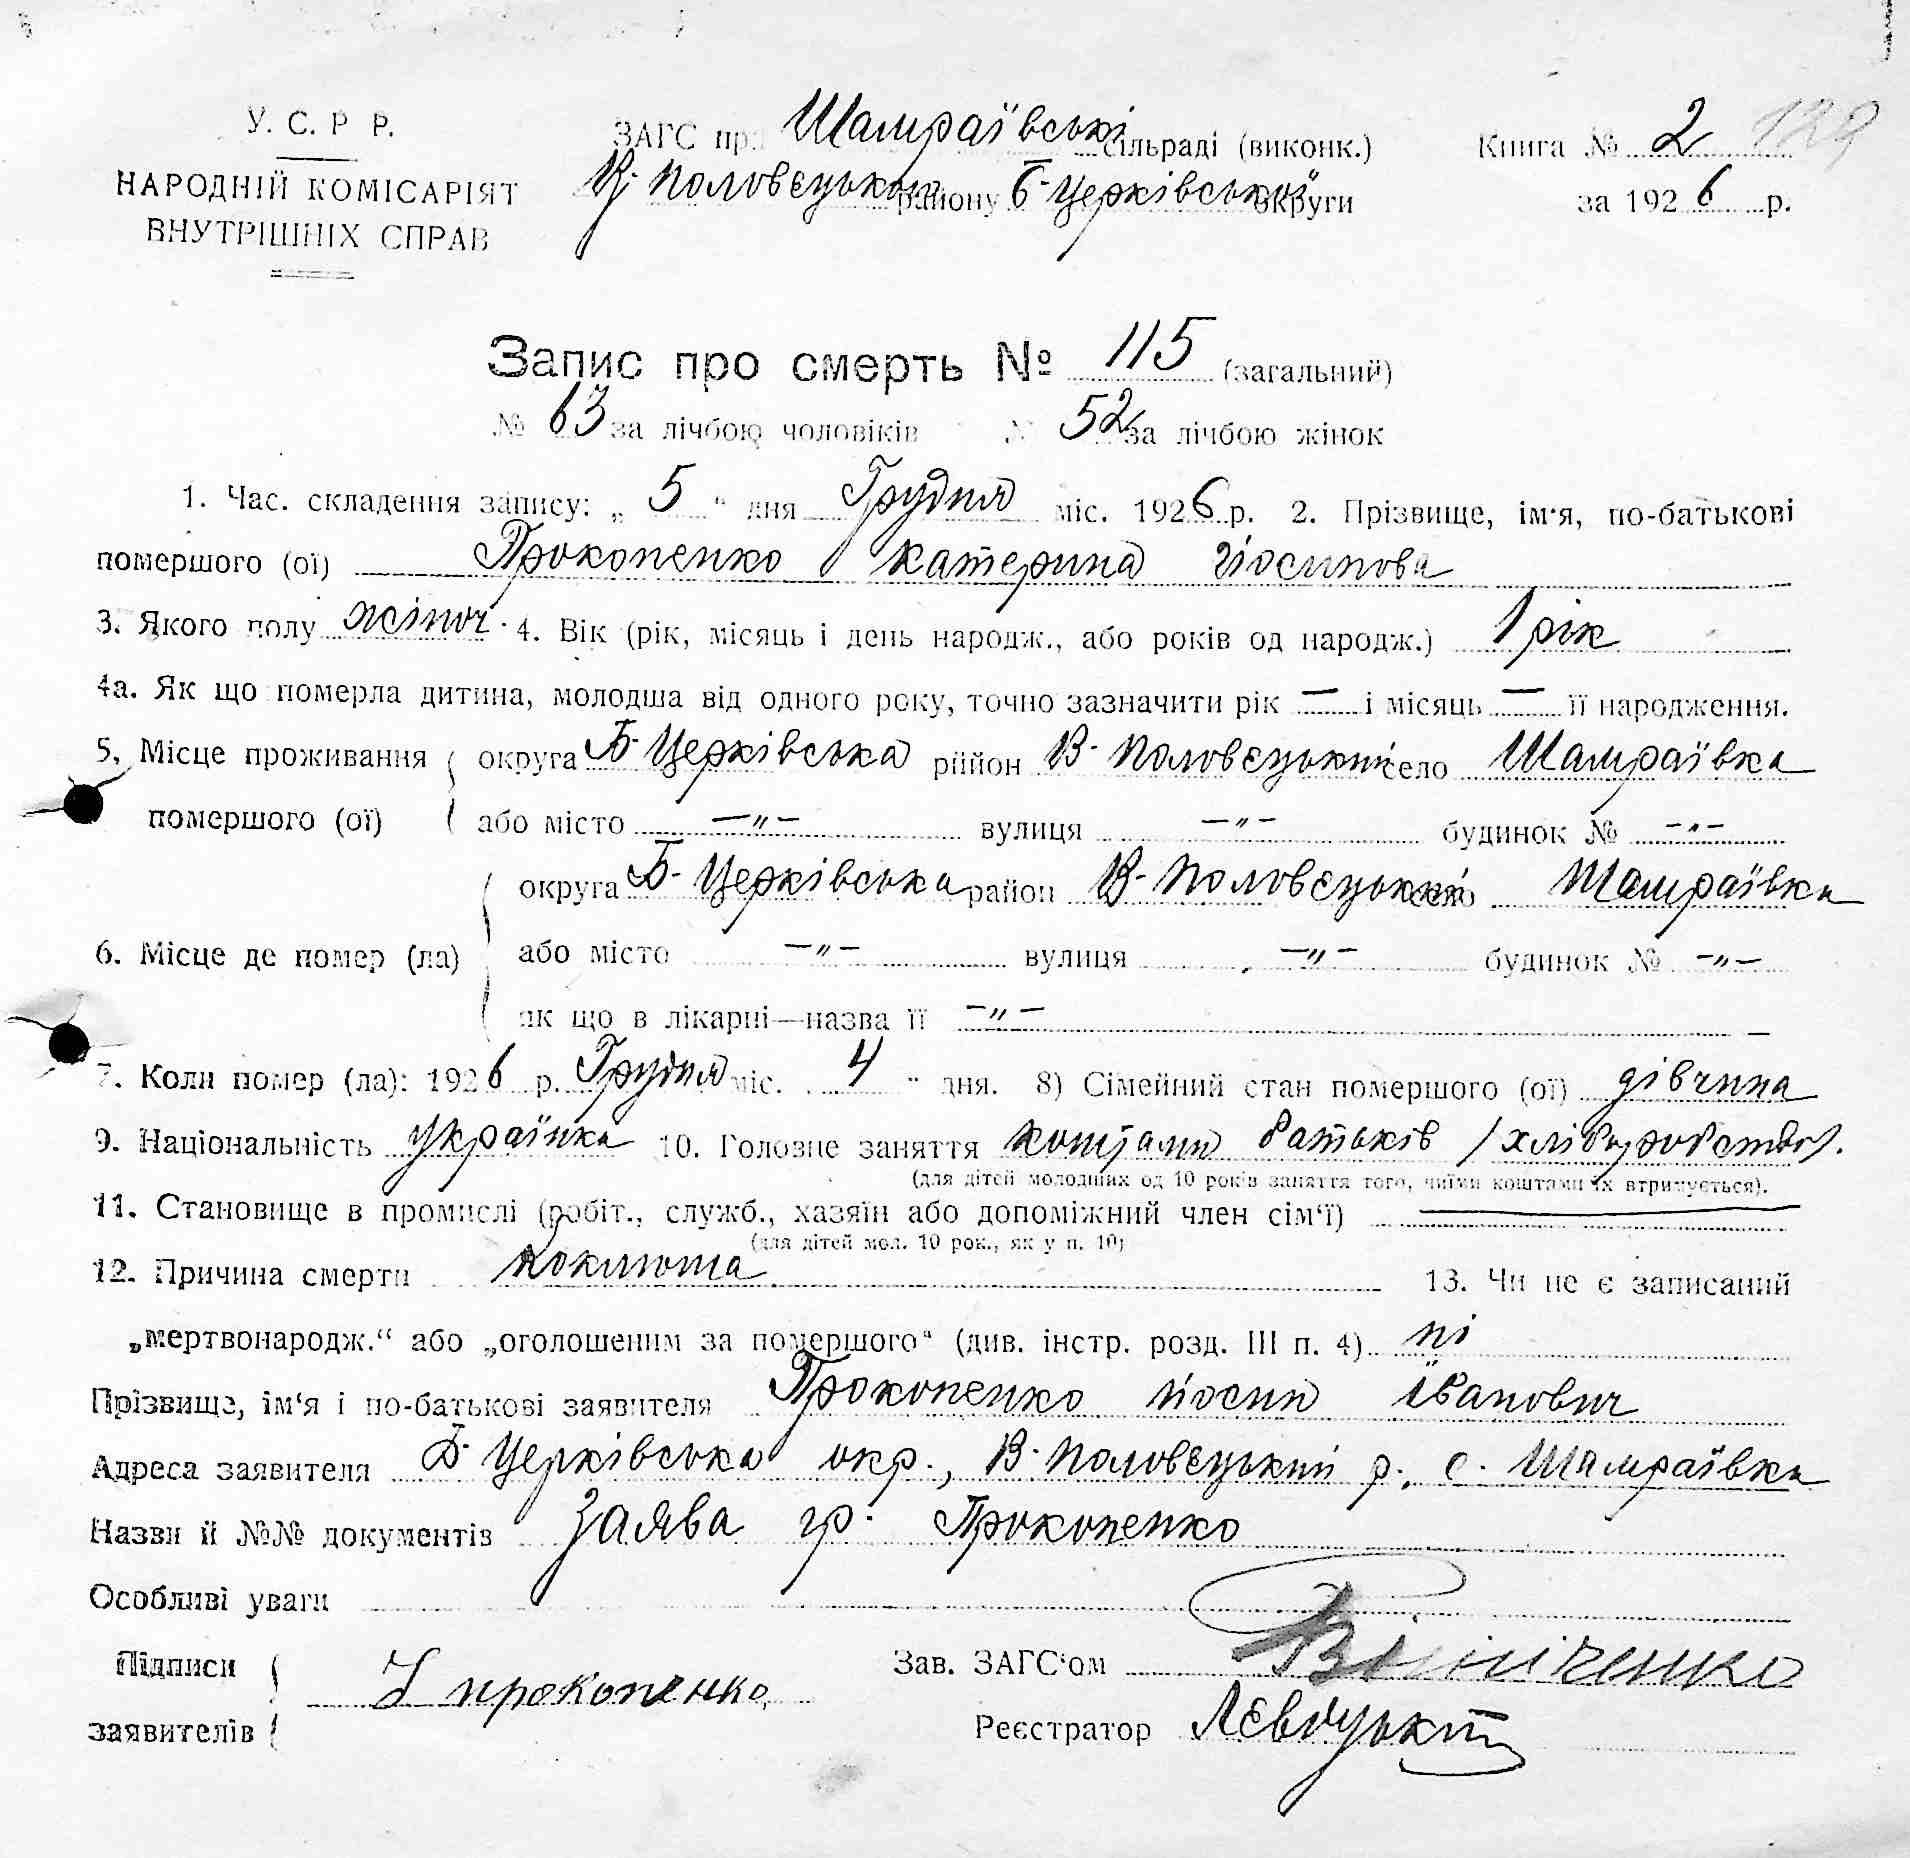 У. С. Р Р.
НАРОДНІЙ КОМІСАРІЯТ
ВНУТРІШНІХ СПРАВ
ЗАГС пр. Шамраївські сільраді (виконк.)
В-Половецького району Б-Церківської округи
Книга № 2 129
за 1926 р.
Запис про смерть № 115 (загальний)
№ 63 за лічбою чоловіків № 52 за лічбою жінок
1. Час. складення запису: „ 5 “ дня Грудня міс. 1926 р. 2. Прізвище, ім'я, по-батькові
помершого (ої) Прокопенко Катерина Йосипова
3. Якого полу жіноч. 4. Вік (рік, місяць і день народж., або років од народж.) 1 рік
4а. Як що померла дитина, молодша від одного року, точно зазначити рік — і місяць — її народження.
5, Місце проживання округа Б-Церківська район В-Половецький село Шамраївка
помершого (ої) або місто —„— вулиця —„— будинок № —„—
округа Б-Церківська район В-Половецький село Шамраївка
6. Місце де помер (ла) або місто —„— вулиця —„— будинок № —„—
як що в лікарні—назва її —„—
7. Коли помер (ла): 1926 р. Грудня міс. 4 “ дня. 8) Сімейний стан помершого (ої) дівчина
9. Національність українка 10. Головне заняття коштами батьків /хліборобство/.
(для дітей молодших од 10 років заняття того, чиїми коштами їх втримується).
11. Становище в промислі (робіт., служб., хазяїн або допоміжний член сім‘ї) —
(для дітей мол. 10 рок., як у п. 10)
12. Причина смерти коклюша 13. Чи не є записаний
„мертвонародж.“ або „оголошеним за помершого“ (див. інстр. розд. III п. 4) ні
Прізвище, ім‘я і по-батькові заявителя Прокопенко Йосип Іванович
Адреса заявителя Б-Церківська окр., В-Половецький р. с. Шамраївка
Назви й №№ документів Заява гр. Прокопенко
Особливі уваги
Підписи
заявителів
Й прокопенко
Зав. ЗАГС‘ом
Реєстратор